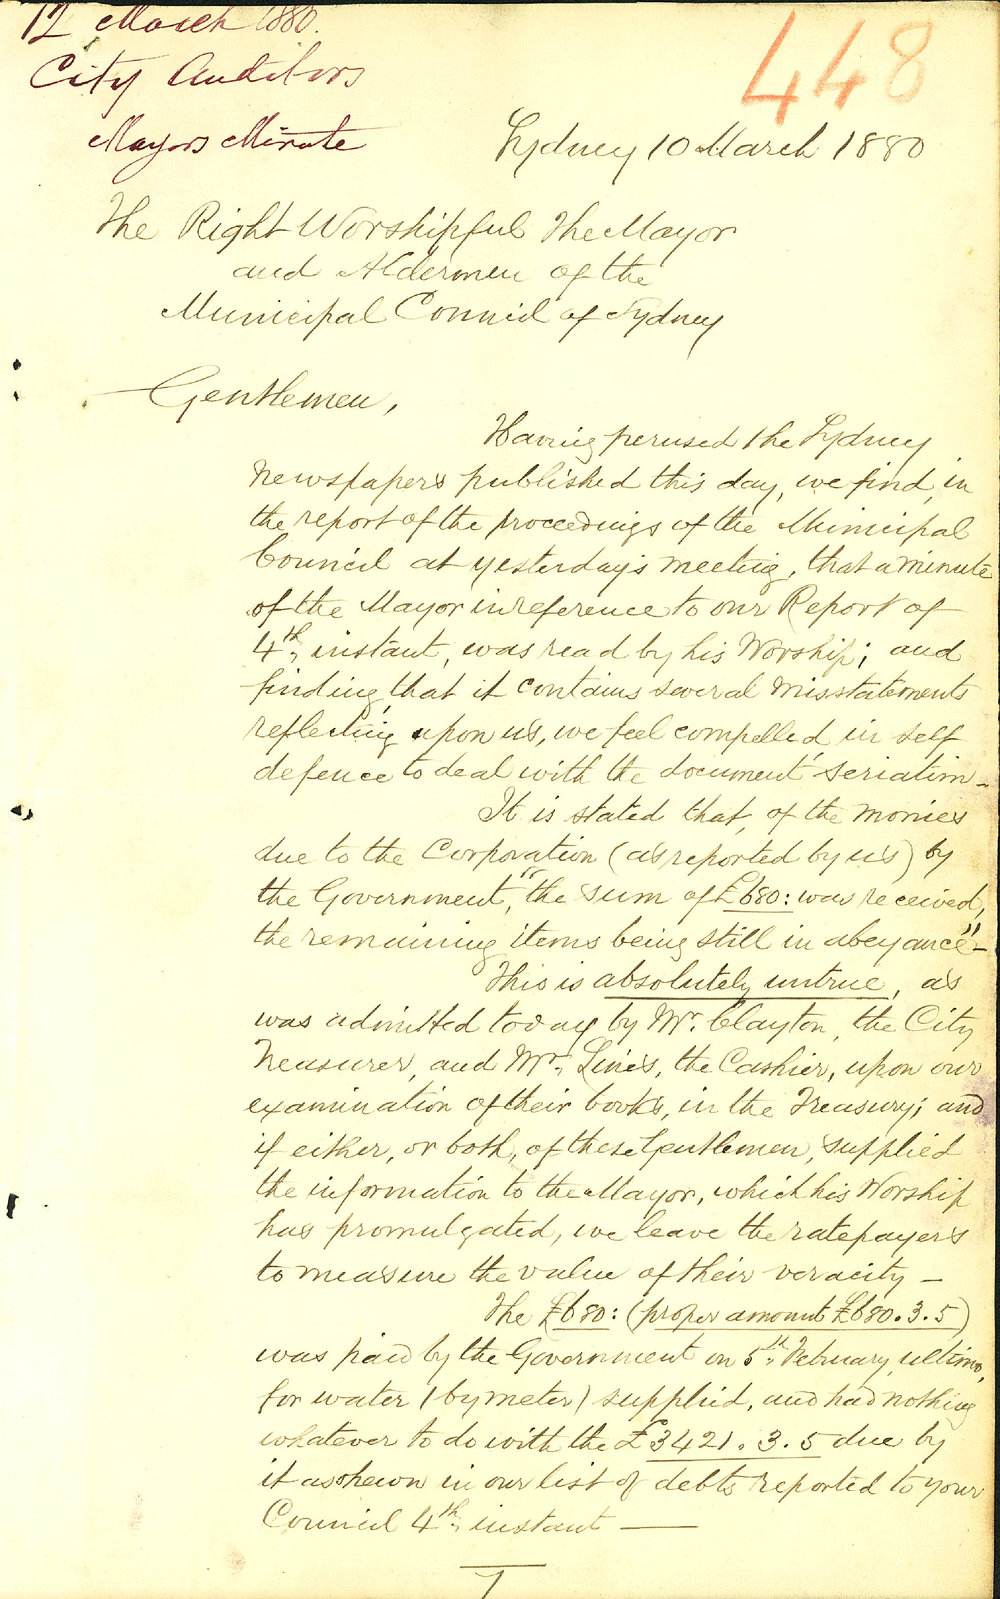 12 March 1880.
City Auditors
Mayors Minute
448
Sydney 10 March 1880
The Right Worshipful The Mayor
and Aldermen of the
Municipal Council of Sydney
Gentlemen,
Having perused the Sydney
Newspapers published this day, we find, in
the report of the proceedings of the Municipal
Council at yesterday's meeting, that a minute
of the Mayor in reference to our Report of
4th, instant, was read by his Worship; and
finding that it contains several misstatements
reflecting upon us, we feel compelled, in self
defence to deal with the document seriatim -
It is stated that, of the monies
due to the Corporation (as reported by us) by
the Government, "the sum of £680: was received,
the remaining items being still in abeyance" -
This is absolutely untrue, as
was admitted today by Mr. Clayton, the City
Treasurer, and Mr. Lines, the Cashier, upon our
examination of their books, in the Treasury; and
if either, or both, of these Gentlemen, supplied
the information to the Mayor, which his Worship
has promulgated, we leave the ratepayers
to measure the value of their veracity -
The £680: (proper amount £680.3.5)
was paid by the Government on 5th February, ultimo,
for water (by meter) supplied, and had nothing
whatever to do with the £3421.3.5 due by
it as shewn in our list of debts reported to your
Council 4th, instant —
1